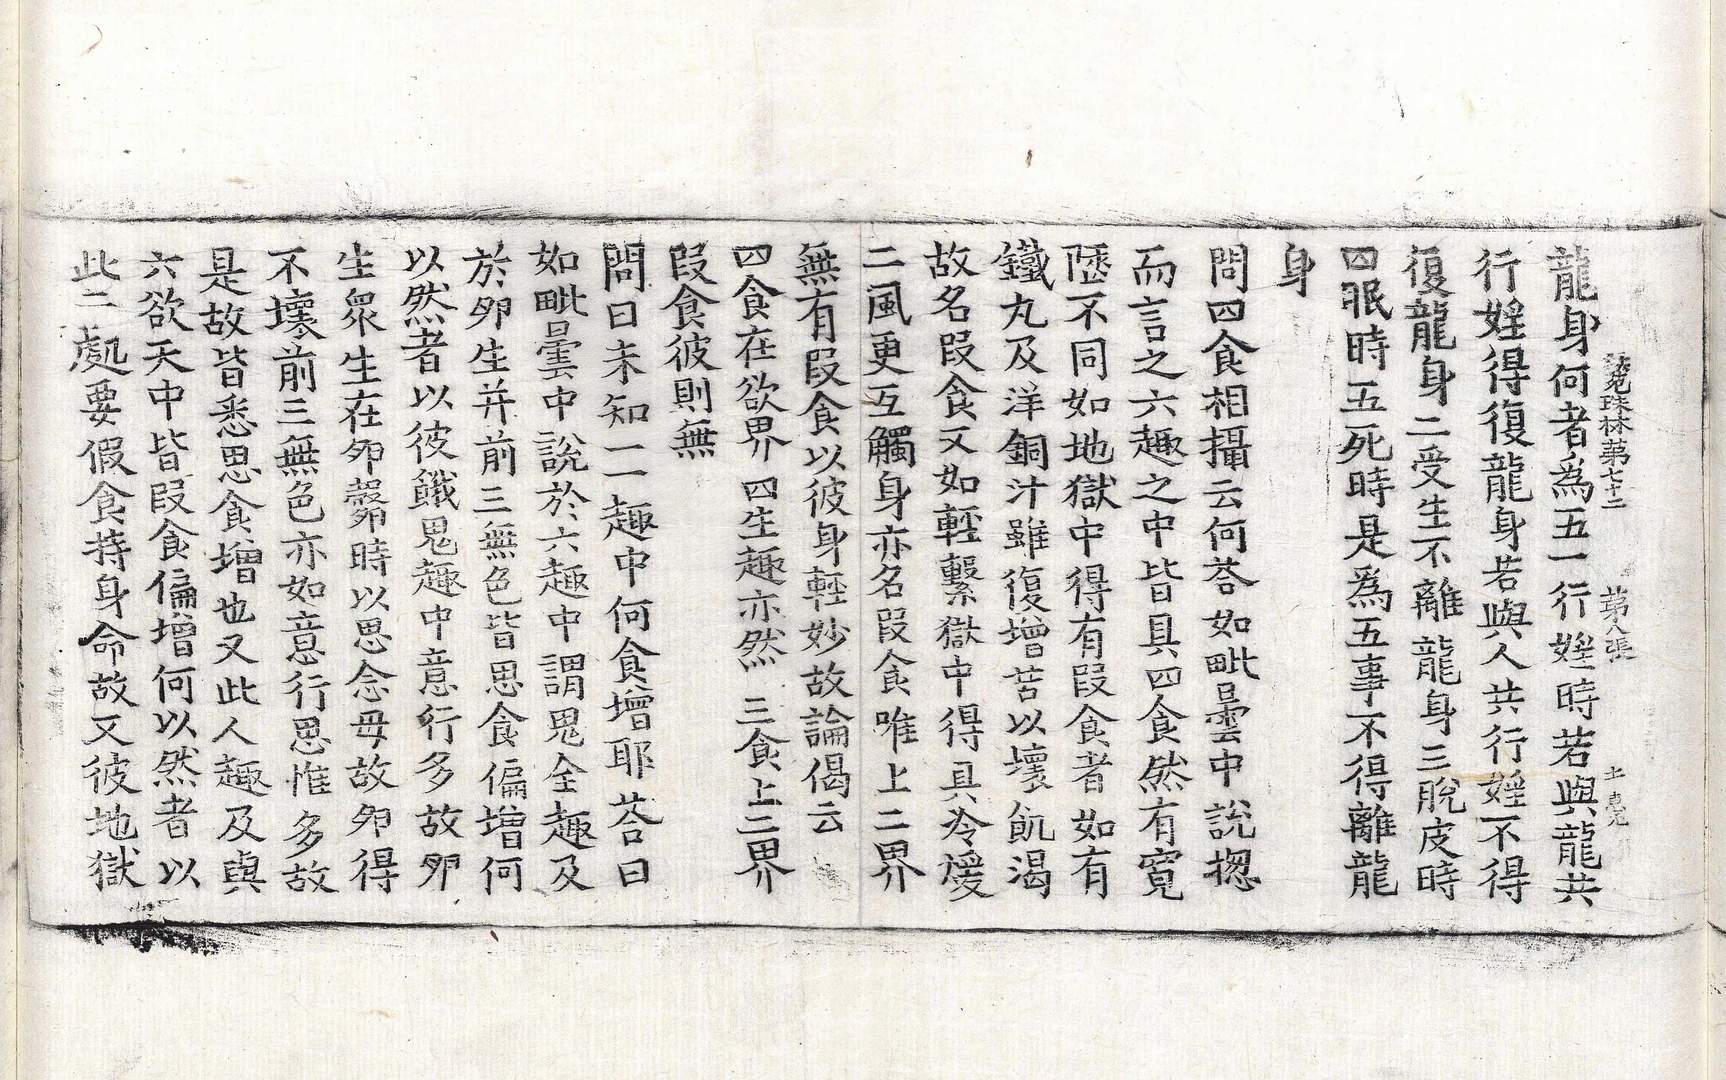 苑珠林第七十二　第八張
龍身何者為五一行婬時若與龍共
行婬得復龍身若與人共行婬不得
復龍身二受生不離龍身三脫皮時
四眠時五死時是為五事不得離龍
身
問四食相攝云何荅如毗曇中說揔
而言之六趣之中皆具四食然有寬
陿不同如地獄中得有段食者如有
鐵丸及洋銅汁雖復增苦以壞飢渴
故名段食又如輕繫獄中得具冷煖
二風更互觸身亦名段食唯上二界
無有段食以彼身輕妙故論偈云
四食在欲界　四生趣亦然　三食上二界
段食彼則無
問曰未知一一趣中何食增耶荅曰
如毗曇中說於六趣中謂鬼全趣及
於卵生并前三無色皆思食偏增何
以然者以彼餓鬼趣中意行多故卵
生眾生在卵㲉時以思念母故卵得
不壞前三無色亦如意行思惟多故
是故皆悉思食增也又此人趣及與
六欲天中皆段食偏增何以然者以
此二處要假食持身命故又彼地獄